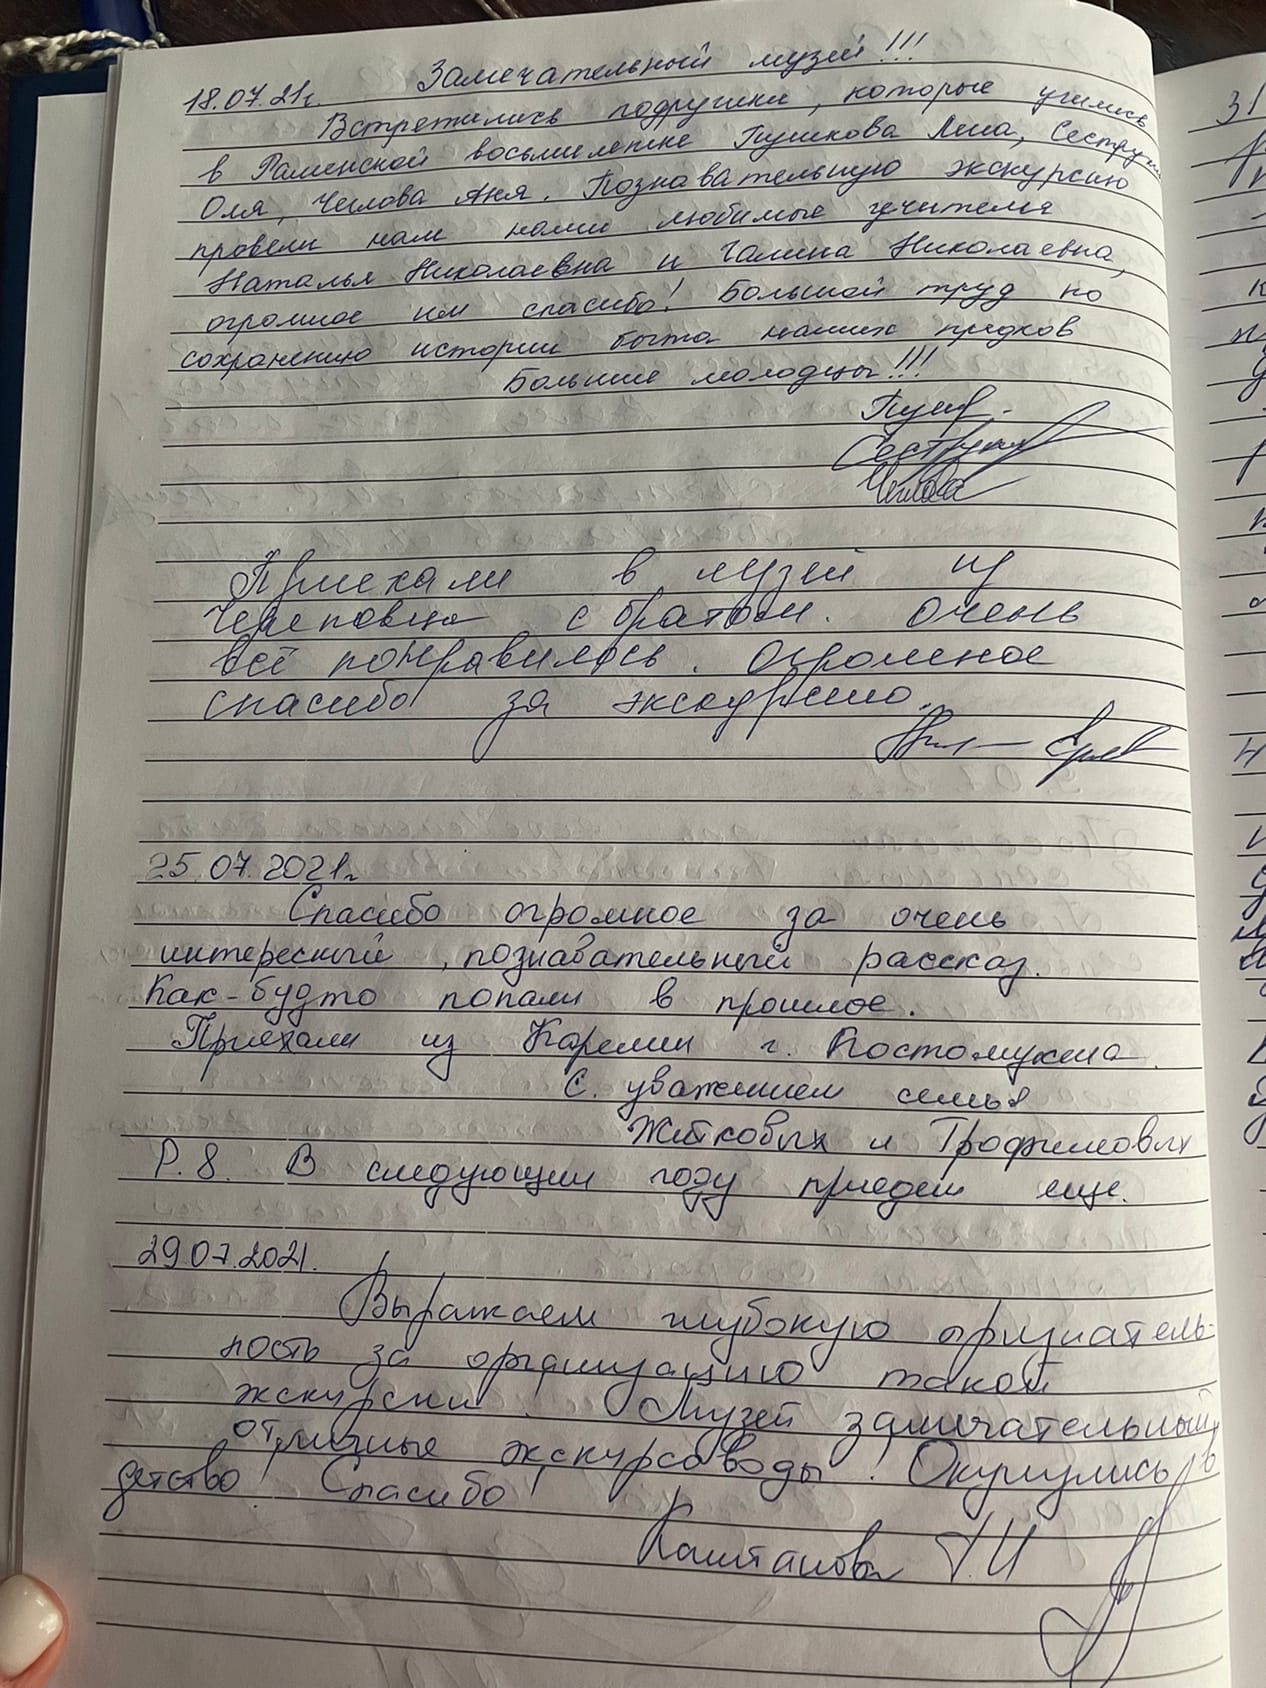 Замечательный музей!!!
18.07.21г.
Встретились подружки, которые учились
в Раменской восьмилетке Пушкова Лена, Сеструхи
Оля, Чехлова Аня. Познавательную экскурсию
провели нам наши любимые учителя
Наталья Николаевна и Галина Николаевна,
огромное им спасибо! Большой труд по
сохранению истории быта наших предков
Большие молодцы!!!
Приехали в музей из
Череповца с братом. Очень
всё понравилось. Огромное
спасибо за экскурсию.
25.07.2021г
Спасибо огромное за очень
интересный, познавательный рассказ.
Как-будто попали в прошлое.
Приехали из Карелии г. Костомукша.
С. уважением семья
Житковых и Трофимовых
P.S. В следующим году приедем еще.
29.07.2021.
Выражаем глубокую признатель-
ность за организацию такой
экскурсии. Музей замичательный,
отличные экскурсоводы! Окунулись в
детство! Спасибо!
Каштанова Г.И
31